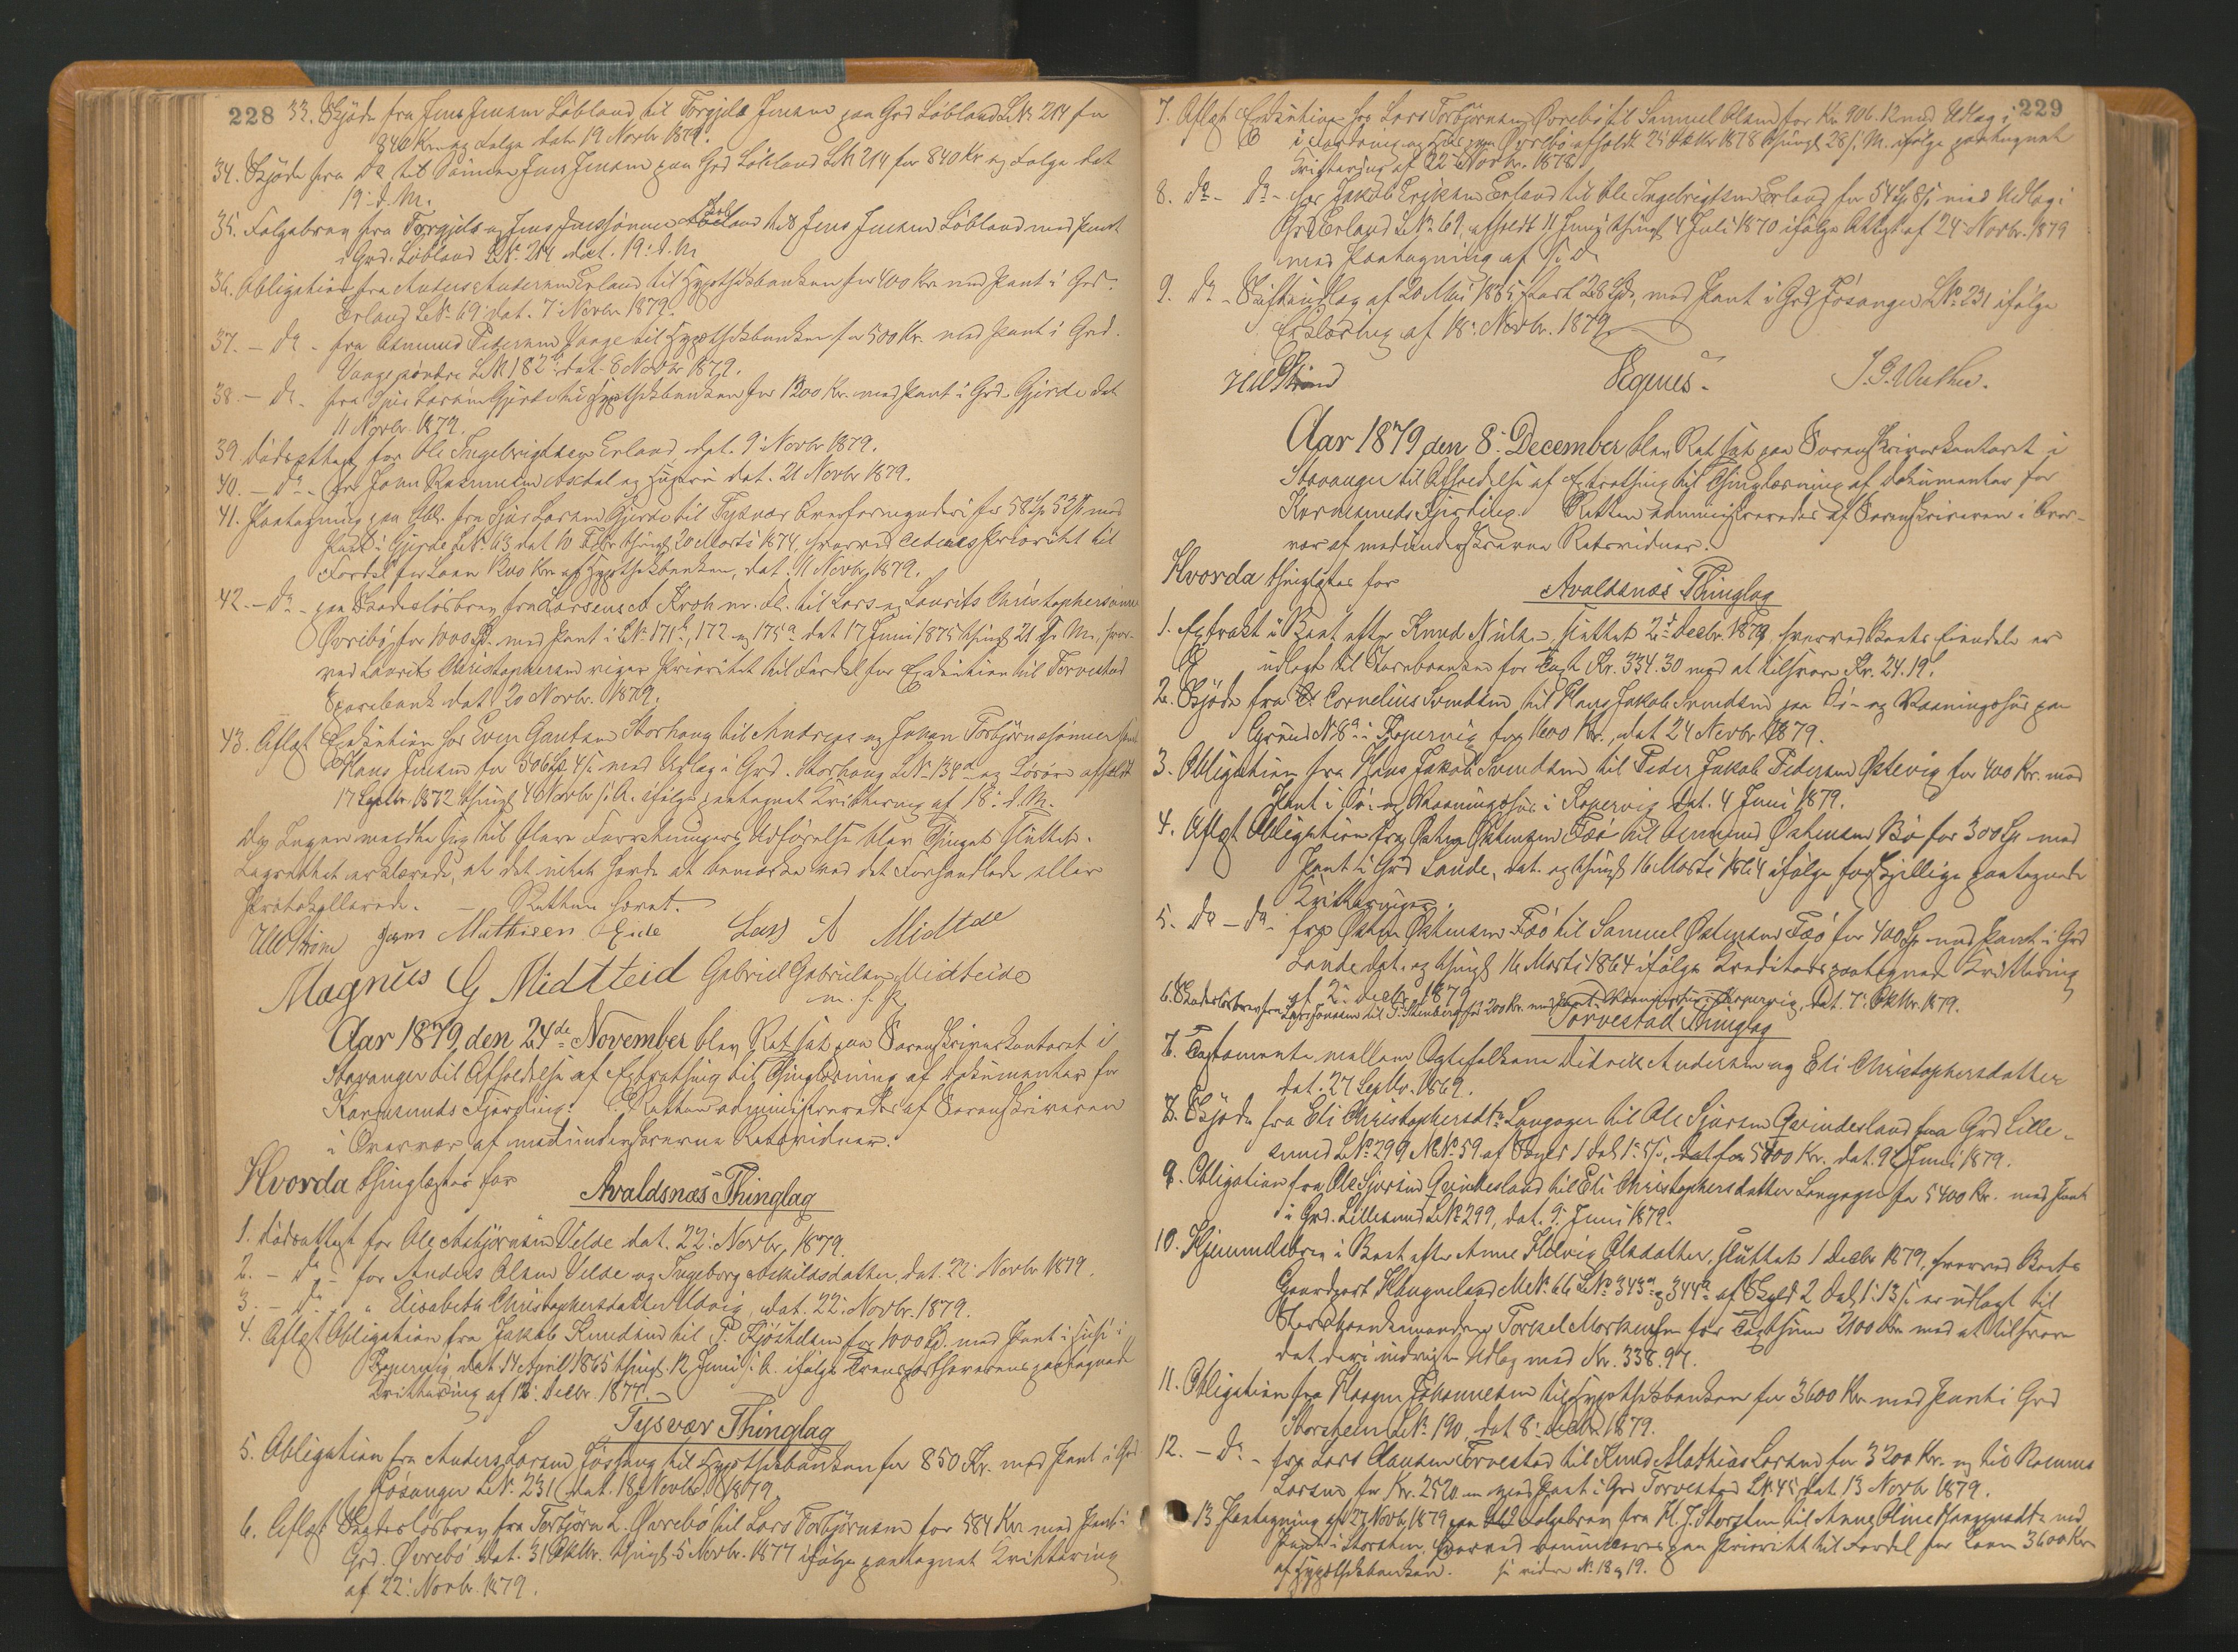 228
33. Skjøde fra Jens Jensen Løbland til Torgjels Jensen paa Grd Løbland LNr. 214 for
840 Kr. og Folge dat. 19 Novbr 1879.
34. Skjøde fra Do til Sønnen Jens Jensen paa Grd Løbland LNr 214 for 840 Kr og Folge dat
19. d. M.
35. Folgebrev fra Torgjels og Jens Jenssønner Løbland til Jens Jensen Løbland med Pant
i Grd. Løbland LNr. 214 dat. 19. d. M.
36. Obligation fra Anders Andersen Erland til Hypothekbanken for 400 Kr. med Pant i Grd.
Erland LNr. 69 dat. 7 Novbr 1879.
37. – Do – fra Asmund Pedersen Vaage til Hypothekbanken for 500 Kr. med Pant i Grd.
Vaage søndre LNr. 182b dat. 8 Novbr 1879.
38. – Do. fra Sjur Larsen Gjerde til Hypothekbanken for 1200 Kr. med Pant i Grd. Gjerde dat
11 Novbr. 1879.
39. Dødsattest for Ole Ingebrigtsen Erland, dat. 9 Novbr 1879.
40. – Do – for John Rasmussen Aksdal og Hustru dat. 21 Novbr 1879.
41. Paategning paa Obl. fra Sjur Larsen Gjerde til Tysvær Overformynderi for 58 Sp 52 ß med
Pant i Gjerde LNr. 63 dat 10 Febr thingl 20 Marts 1874, hvorved cederes Prioritet til
Fordel for Laan 1200 Kr. af Hypothekbanken, dat. 11 Novbr. 1879.
42. – Do – paa Skadesløsbrev fra Larsen & Kroh m. Fl. til Lars og Laurits Christophersønner
Øvrebø for 1000 Sp. med Pant i LNr. 171b, 172 og 175a dat 17 Juni 1875 thingl 21 s. M., hvor-
ved Laurits Christophersen viger Prioritet til Fordel for Exekution til Torvestad
Sparebank dat. 20 Novbr. 1879.
43. Aflæst Exekution hos Even Gautsen Storhaug til Andreas og Johan Torbjørnssønner samt
Hans Jensen for 506 Sp. 4 ß med Udlæg i Grd. Storhaug LNr. 134a og Løsøre afholdt
17 Septbr. 1872 thingl 4 Novbr s. A. ifølge paategnet Kvittering af 18. d. M.
Da Ingen meldte sig til flere Forretningers Udførelse blev Thinget sluttet.
Lagrettet erklærede, at det intet havde at bemærke ved det Forhandlede eller
Protokollerede. – Retten hævet.
Ulstrøm Jørn Mathisen Eide Lars A Midtte
Magnus G Midtteid Gabriel Gabrielsen Midteide
m. f. P.
Aar 1879 den 24de November blev Ret sat paa Sorenskriverkontoret i
Stavanger til Afholdelse af Extrathing til Thinglæsning af Dokumenter for
Karmsunds Fjerding. Retten administreredes af Sorenskriveren
i Overvær af medunderskrevne Retsvidner.
Hvorda thinglæstes for Avaldsnæs Thinglag
1. Dødsattest for Ole Asbjørnsen Velde dat. 22. Novbr. 1879.
2. – Do – for Anders Olsen Velde og Ingeborg Askildsdatter, dat. 22. Novbr 1879.
3. – Do – " Elisabeth Christophersdatter Udvig, dat. 22. Novbr. 1879.
4. Aflæst Obligation fra Jakob Knudsen til P. Kjøstelsen for 1000 Sp. med Pant i Huse i
Kopervig dat. 14 April 1865 thingl. 12 Juni s. A. ifølge Transporthaverens paategnede
Kvittering af 12. Decbr. 1877.
Tysvær Thinglag
5. Obligation fra Anders Larsen Føssang til Hypothekbanken for 850 Kr. med Pant i Grd
Føsanger LNr. 231 dat. 18 Novbr. 1879.
6. Aflæst Skadesløsbrev fra Torbjørn L. Øvrebø til Lars Torbjørnsen for 584 Kr. med Pant i
Grd. Øvrebø dat. 31 Oktbr. thingl 5 Novbr. 1877 ifølge paategnet Kvittering
af 22. Novbr. 1879.
229
7. Aflæst Exekution hos Lars Torbjørnsen Øvrebø til Samuel Olsen for Kr. 906.12 med Udlæg i
i Løsøre og Huse paa Øvrebø afholdt 25 Oktbr 1878 thingl 28 s. M. ifølge paategnet
Kvittering af 22 Novbr. 1878.
8. Do – Do – hos Jakob Eriksen Erland til Ole Ingebrigtsen Erland for 54 Sp 8 ß med Udlæg i
Grd Erland LNr. 69, afholdt 11 Juni thingl 4 Juli 1870 ifølge Attest af 24 Novbr. 1879
med Paategning af s. D.
9. Do – Skifteudlæg af 20 Mai 1835 stort 28 Sp, med Pant i Grd Føsanger LNr. 231 ifølge
Erklæring af 18. Novbr. 1879.
Ulstrøm Segenes. J. G. Wethe.
Aar 1879 den 8. December blev Ret sat paa Sorenskriverkontoret i
Stavanger til Afholdelse af Extrathing til Thinglæsning af Dokumenter for
Karmsunds Fjerding. Retten administreredes af Sorenskriveren i Over-
vær af medunderskrevne Retsvidner.
Hvorda thinglæstes for
Avaldsnæs Thinglag
1. Extrakt i Boet efter Knud Nilsen, sluttet 2. Decbr. 1879, hvorved Boets Eiendele er
udlagt til Stervboenken for Taxt Kr. 334.30 med at tilsvare Kr. 24.19.
2. Skjøde fra Cornelius Svendsen til Hans Jakob Svendsen paa Sø- og Vaaningshus paa
Grund No. 8a i Kopervig for 1600 Kr., dat 24 Novbr 1879.
3. Obligation fra Hans Jakob Svendsen til Peder Jakob Pedersen Østevig for 400 Kr. med
Pant i Sø- og Vaaningshus i Kopervig dat. 4 Juni 1879.
4. Aflæst Obligation fra Østen Østensen Fæø til Asmund Østensen Bø for 300 Sp med
Pant i Grd Lande, dat. og thingl 16 Marts 1864 ifølge forskjellige paategnede
Kvitteringer.
5. Do – Do – fra Østen Østensen Fæø til Samuel Østensen Fæø for 400 Sp med Pant i Grd
Lande dat. og thingl 16 Marts 1864 ifølge Kreditors paategnede Kvittering
af 2. Decbr 1879.
6. Skadesløsbrev fra Lars Jonassen til P. Stenberg for 200 Kr. med Pant i Vaaningshus i Kopervig, dat. 7. Oktbr. 1879.
Torvestad Thinglag
7. Testamente mellem Ægtefolkene Didrik Andersen og Eli Christophersdatter
dat. 27 Septbr. 1869.
8. Skjøde fra Eli Christophersdtr. Langager til Ole Sjursen Qvindesland paa Grd Lille-
sund LNr. 299 MNr. 59 af Skyld 1 Dal 1 ß, for 5400 Kr. dat. 9 Juni 1879.
9. Obligation fra Ole Sjursen Qvindesland til Eli Christophersdatter Langager for 5400 Kr. med Pant
i Grd. Lillesund LNr. 299, dat. 9. Juni 1879.
10. Hjemmelsbrev i Boet efter Anne Helvig Olsdatter, sluttet 1 Decbr 1879, hvorved Boets
Gaardpart Haugneland MNr. 66 LNr. 343a og 344a af Skyld 2 Dal. 1. 13 ß er udlagt til
Stervboenkemanden Torkel Markussen for Taxtsum 2100 Kr. med at tilsvare
det deri indregte Udlæg med Kr. 338.97.
11. Obligation fra Haagen Johannesen til Hypothekbanken for 3600 Kr. med Pant i Grd
Storsteen LNr. 190, dat 8. Decbr 1879.
12. – Do – fra Lars Clausen Torvestad til Knud Mathias Larsen for 3200 Kr. og til Rasmus
Larsen for Kr. 2520 med Pant i Grd Torvestad LNr. 45, dat 13 Novbr 1879.
13. Paategning af 27 Novbr. 1879 paa Folgebrev fra H. J. Storsten til Anne Oline Haagensdtr. med
Pant i Storsten, hvorved renunceres paa Prioritet til Fordel for Laan 3600 Kr.
af Hypothekbanken. se videre No. 18 og 19.